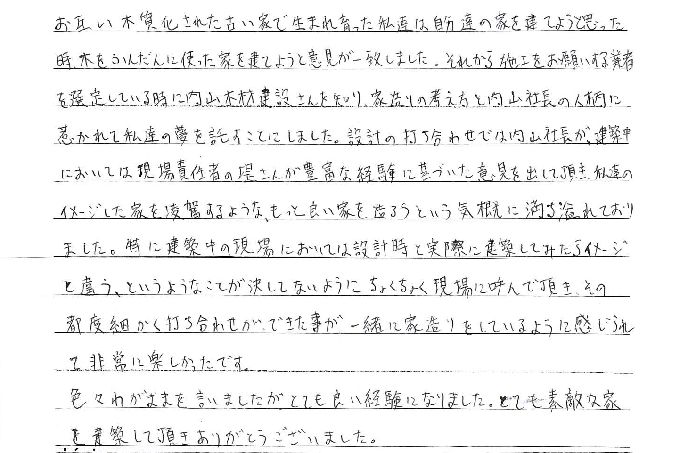 お互い木質化された古い家で生まれ育った私達は自分達の家を建てようと思った
時木をふんだんに使った家を建てようと意見が一致しました。それから施工をお願いする業者
を選定している時に内山木材建設さんを知り、家造りの考え方と内山社長の人柄に
惹かれて私達の夢を託すことにしました。設計の打ち合わせでは内山社長が、建築中
においては現場責任者の堤さんが豊富な経験に基づいた意見を出して頂き私達の
イメージした家を凌駕するような、もっと良い家を造ろうという気概に満ち溢れており
ました。特に建築中の現場においては設計時と実際に建築してみたらイメージ
と違う、というようなことが決してないようにちょくちょく現場に呼んで頂き、その
都度細かく打ち合わせができた事が一緒に家造りをしているように感じられ
て非常に楽しかったです。
色々わがままを言いましたがとても良い経験になりました。とても素敵な家
を建築して頂きありがとうございました。